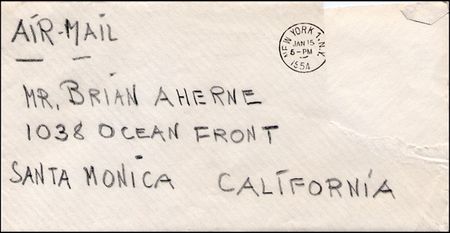 AIR-MAIL
NEW YORK 1, N.Y.
JAN 15
6-PM
1954
MR. BRIAN AHERNE
1038 OCEAN FRONT
SANTA MONICA CALIFORNIA